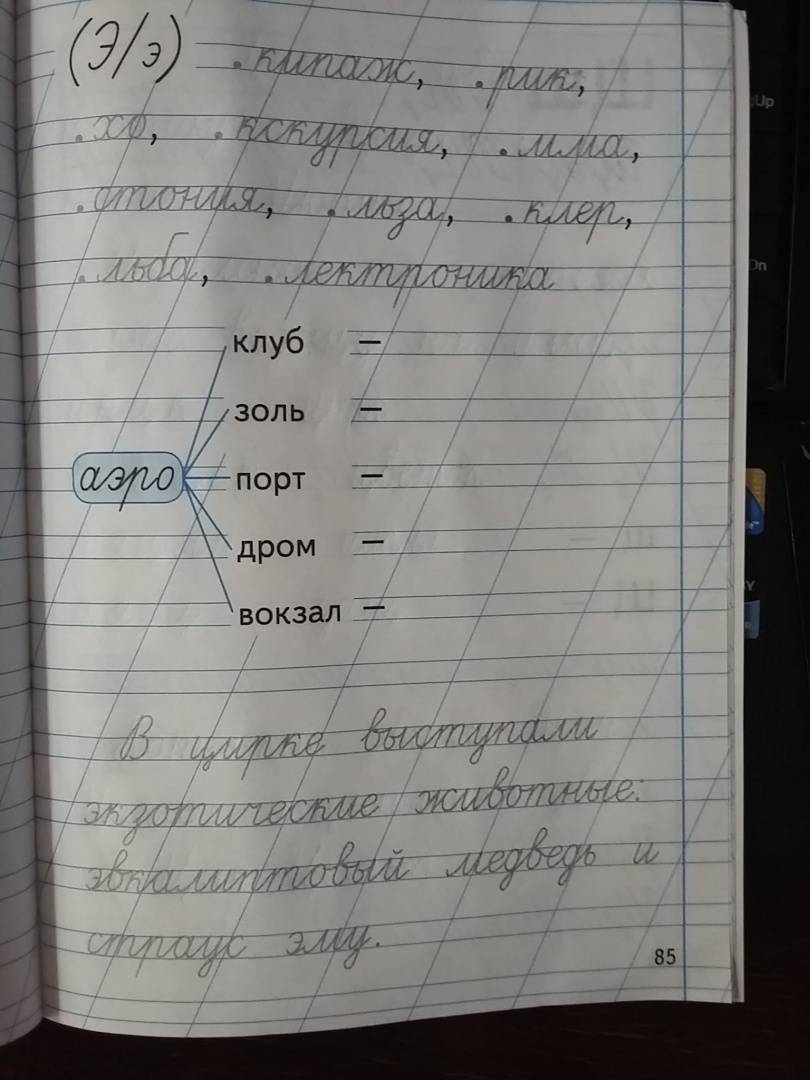 (Э/э) .кипаж, .рик,
.хо, .кскурсия, .мма,
.стония, .льза, .клер,
.льба, .лектроника
клуб –
золь –
аэро порт –
дром –
вокзал –
В цирке выступали
экзотические животные:
эвкалиптовый медведь и
страус эму.
85